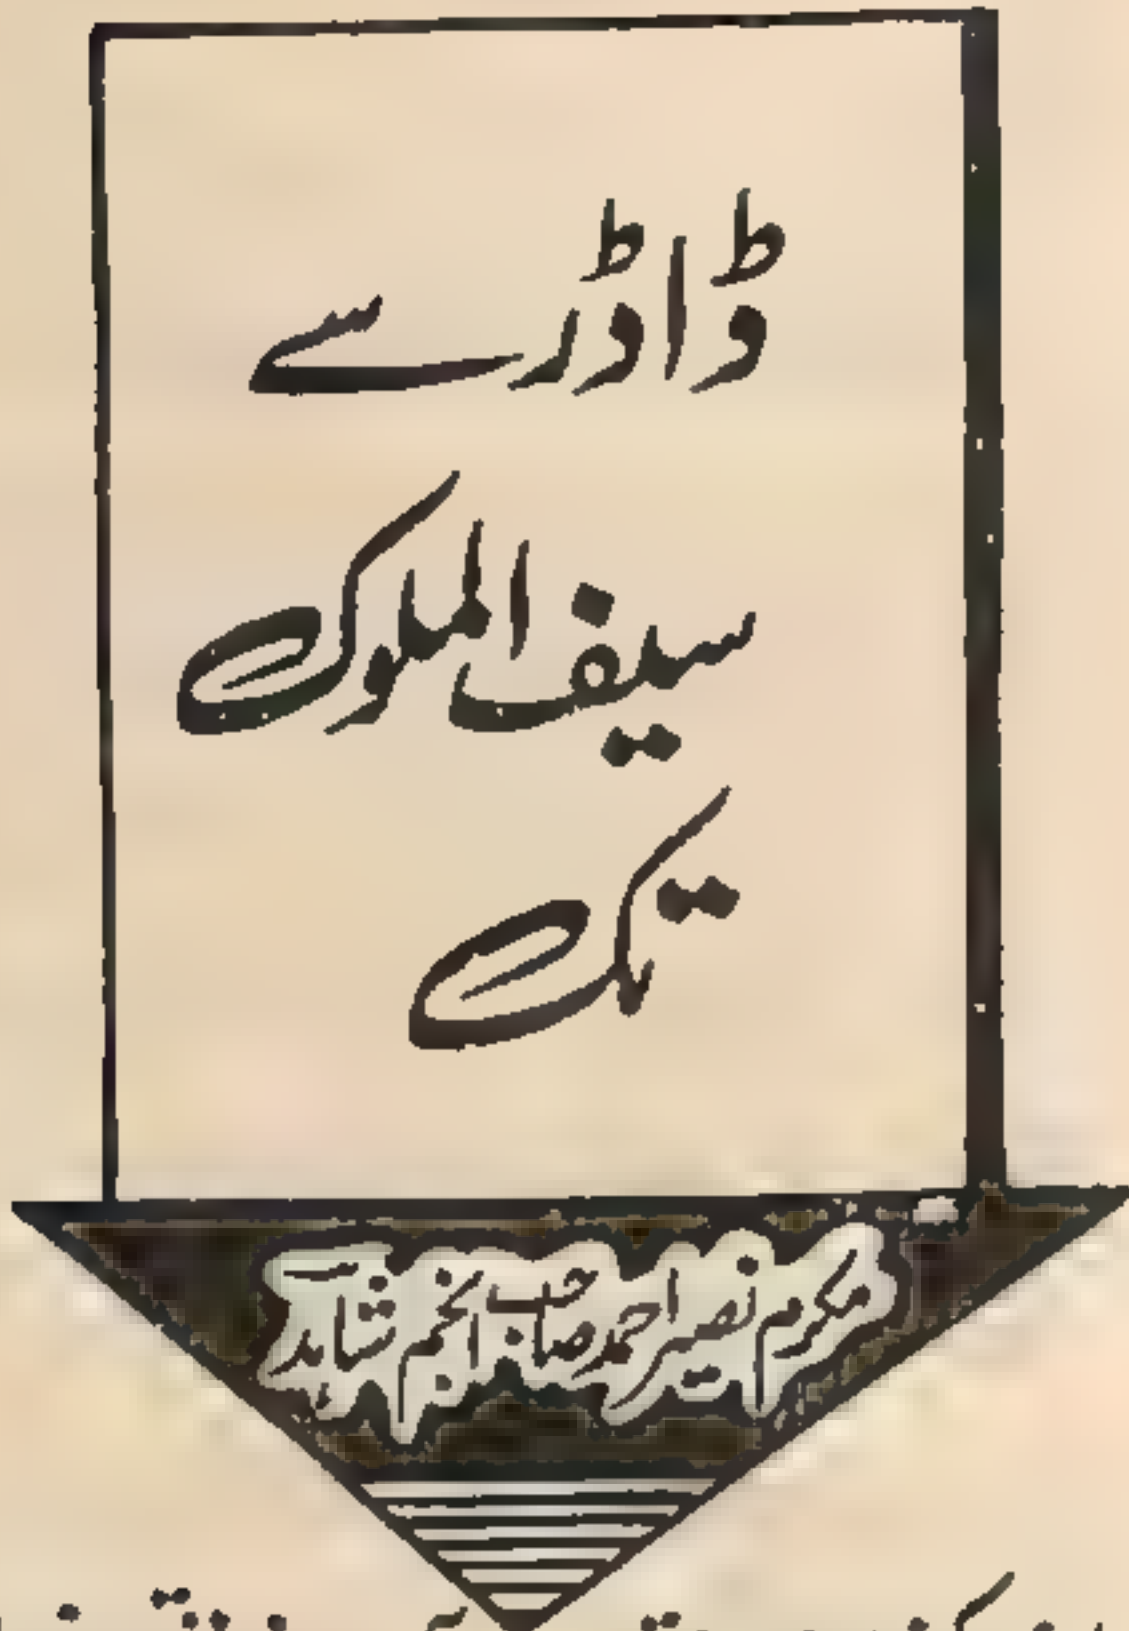 ڈاڈر سے
سیف الملوک
تک
مکرم نصیر احمد صاحب انجم شاہد